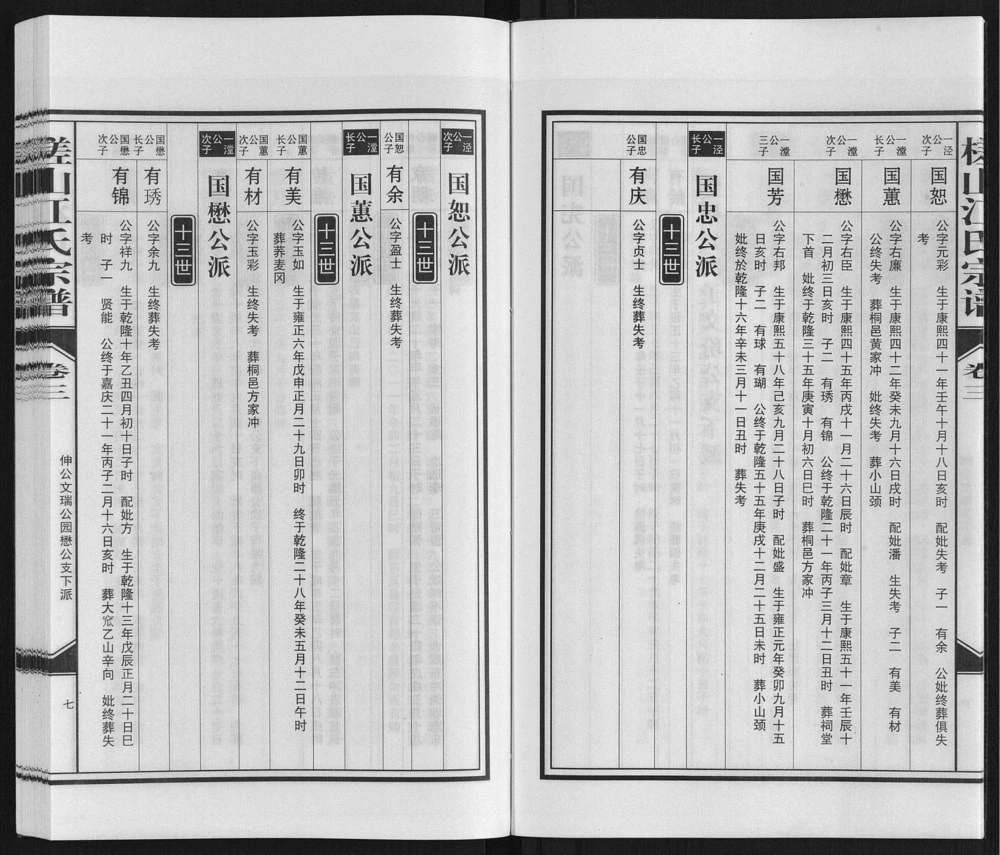 槎山江氏宗谱
卷三
一泾公次子
国恕
公字元彩 生于康熙四十一年壬午十月十八日亥时 配妣失考 子一 有余 公妣终葬俱失
考
一瀅公长子
国蕙
公字右廉 生于康熙四十二年癸未九月十六日戌时 配妣潘 生失考 子二 有美 有材
公终失考 葬桐邑黄家冲 妣终失考 葬小山颈
一瀅公次子
国懋
公字右臣 生于康熙四十五年丙戌十一月二十六日辰时 配妣章 生于康熙五十一年壬辰十
二月初三日亥时 子二 有琇 有锦 公终于乾隆二十一年丙子三月十二日丑时 葬祠堂
下首 妣终于乾隆三十五年庚寅十月初六日巳时 葬桐邑方家冲
一瀅公三子
国芳
公字右邦 生于康熙五十八年己亥九月二十八日子时 配妣盛 生于雍正元年癸卯九月十五
日亥时 子二 有球 有瑚 公终于乾隆五十五年庚戌十二月二十五日未时 葬小山颈
妣终於乾隆十六年辛未三月十一日丑时 葬失考
一泾公长子
国忠公派
十三世
国忠公子
有庆
公字贞士 生终葬失考
一泾公次子
国恕公派
十三世
国恕公子
有余
公字盈士 生终葬失考
一瀅公长子
国蕙公派
十三世
国蕙公长子
有美
公字玉如 生于雍正六年戊申正月二十九日卯时 终于乾隆二十八年癸未五月十二日午时
葬荞麦冈
国蕙公次子
有材
公字玉彩 生终失考 葬桐邑方家冲
一瀅公次子
国懋公派
十三世
国懋公长子
有琇
公字余九 生终葬失考
国懋公次子
有锦
公字祥九 生于乾隆十年乙丑四月初十日子时 配妣方 生于乾隆十三年戊辰正月二十日巳
时 子一 贤能 公终于嘉庆二十一年丙子二月十六日亥时 葬大窊乙山辛向 妣终葬失
考
槎山江氏宗谱
卷三
伸公文瑞公园懋公支下派
七